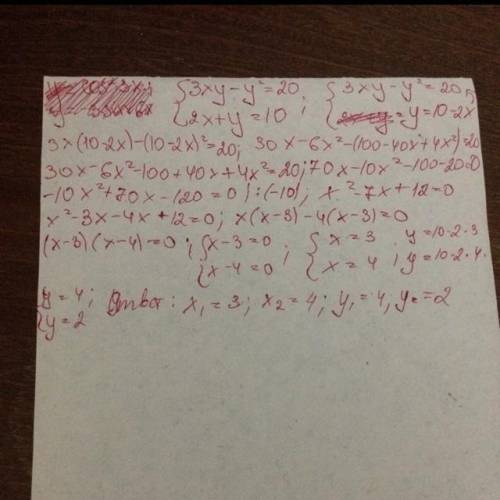 {3xy-y²=20 ; {3xy-y²=20;
{2x+y=10 {y=10-2x
3x(10-2x)-(10-2x)²=20; 30x-6x²-(100-40x+4x²)=20
30x-6x²-100+40x+4x²=20; 70x-10x²-100-20=0
-10x²+70x-120=0 | :(-10); x²-7x+12=0
x²-3x-4x+12=0; x(x-3)-4(x-3)=0
(x-3)(x-4)=0; {x-3=0 ; {x=3 ; y=10-2·3
{x-4=0 {x=4 ; y=10-2·4
{y=4; Ответ: x₁=3; x₂=4; y₁=4, y₂=2
{y=2